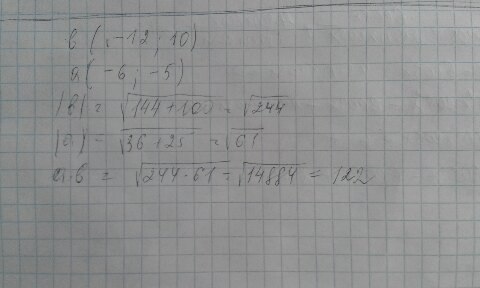 в (-12; 10)
a (-6; -5)
|в| = √144+100 = √244
|a| = √36+25 = √61
a·в = √244·61 = √14884 = 122